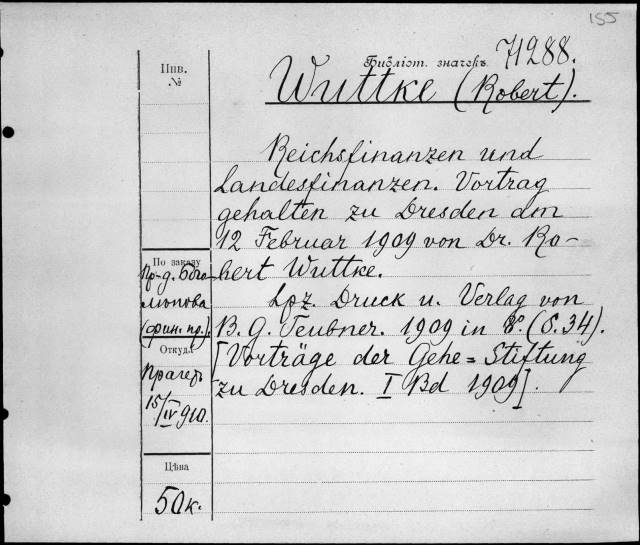 155
Инв.
№
Библіот. значекъ
71288.
Wuttke (Robert).
Reichsfinanzen und
Landesfinanzen. Vortrag
gehalten zu Dresden am
12 Februar 1909 von Dr. Ro-
bert Wuttke.
Lpz. Druck u. Verlag von
B. G. Teubner. 1909 in 8º. (S. 34).
[Vorträge der Gehe=Stiftung
zu Dresden. I Bd 1909].
По заказу
Пр-д. Бого-
лѣпова
(фин. пр.)
Откуда
Прагеръ
15/IV 910.
Цѣна
50к.